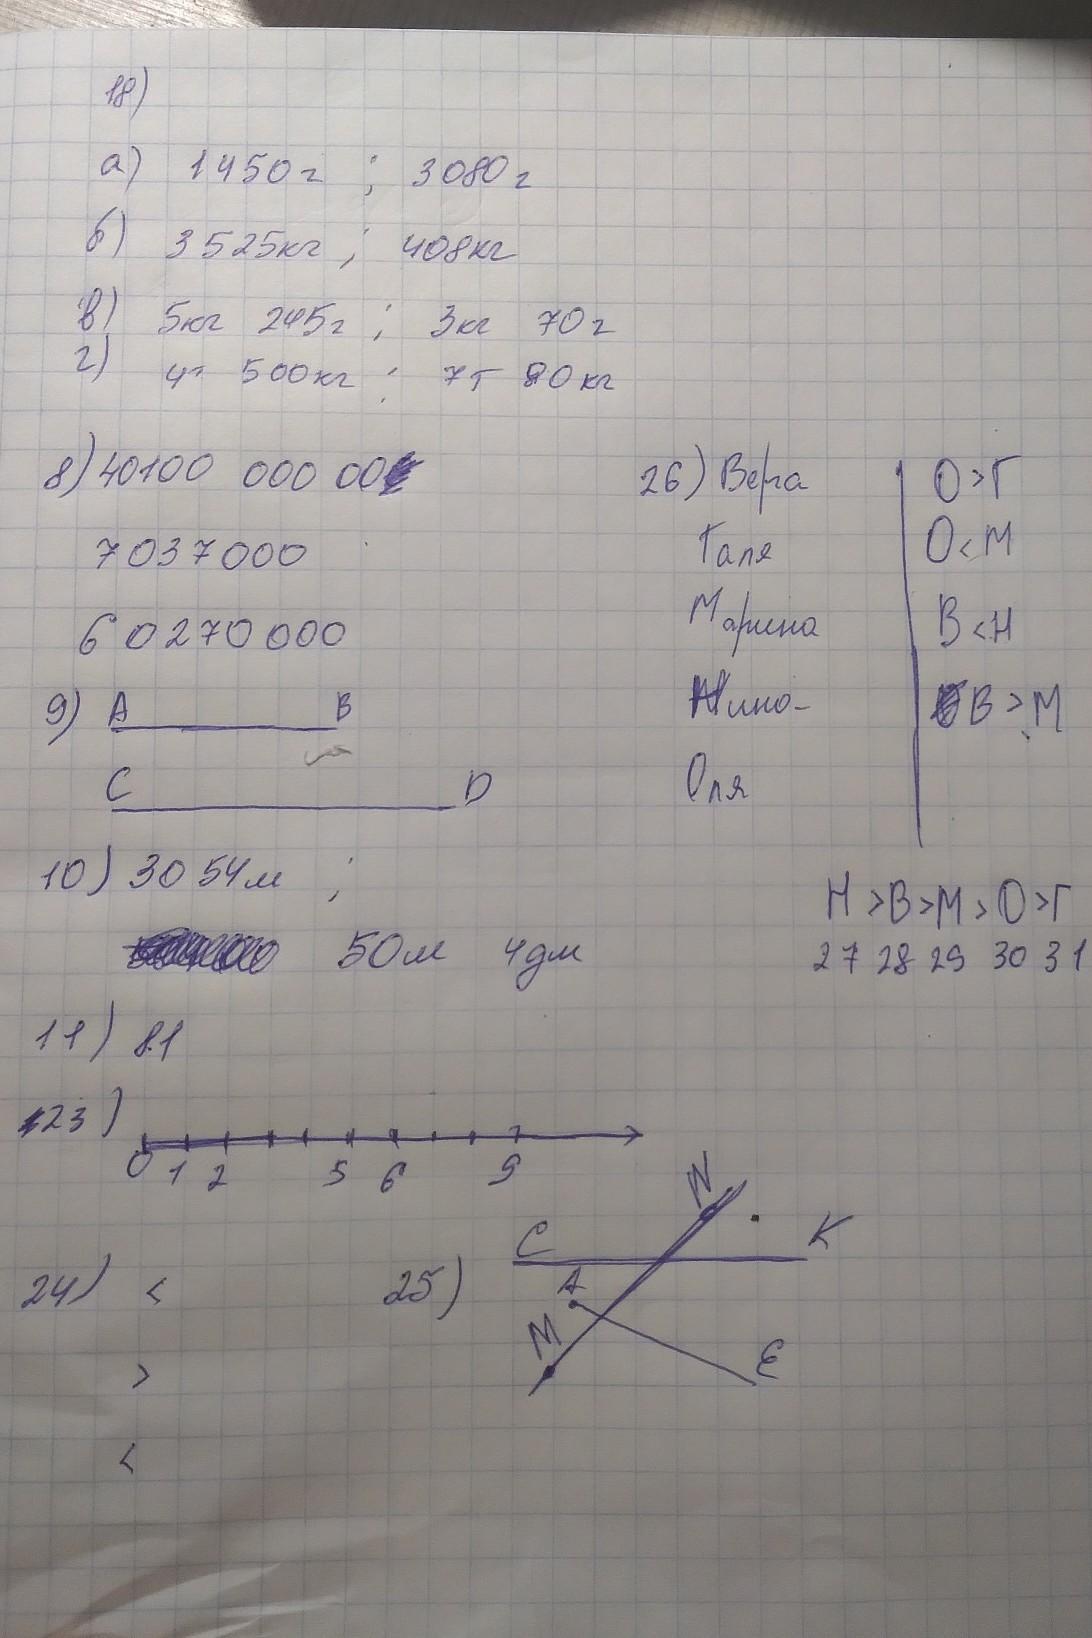 18)
а) 1450г ; 3080г
б) 3525кг ; 408кг
в) 5кг 245г ; 3кг 70г
г) 4т 500кг ; 7т 80кг
8) 40100 000 00
7037000
60270000
9) A B
C D
10) 3054м ;
50м 4дм
11) 81
23)
0 1 2 5 6 9
24) <
>
<
25) C K
N
A
M
E
26) Вера
Галя
Марина
Нина
Оля
О>Г
О<М
В<Н
В>М
Н>В>М>О>Г
27 28 29 30 31